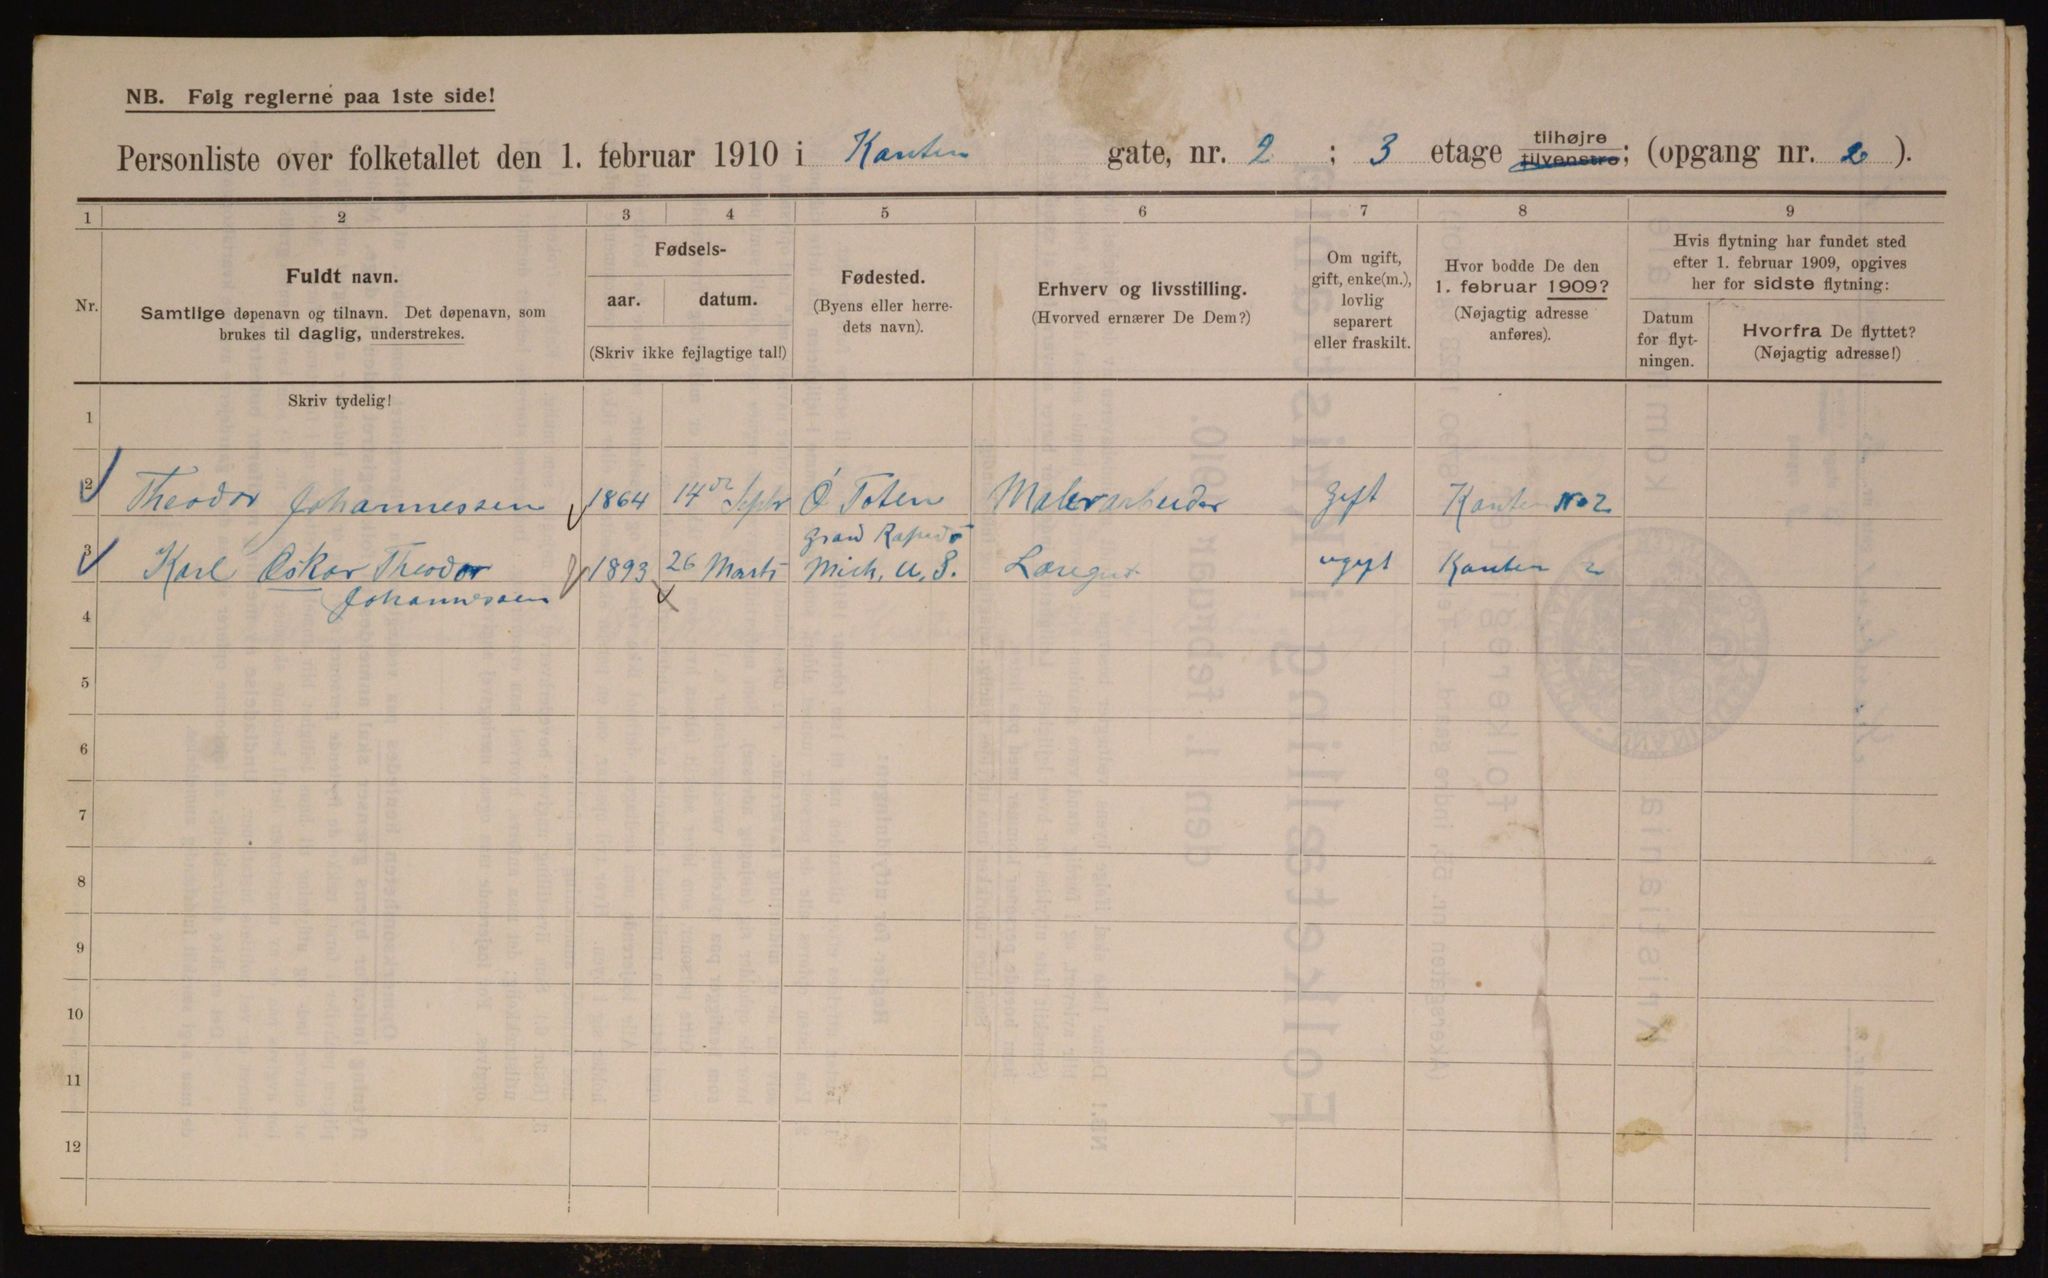 NB. Følg reglerne paa 1ste side!
Personliste over folketallet den 1. februar 1910 i Kanten gate, nr. 2 ; 3 etage tilhøjre tilvenstre; (opgang nr. 2 ).
1 2 3 4 5 6 7 8 9
Nr.
Fuldt navn.
Samtlige døpenavn og tilnavn. Det døpenavn, som
brukes til daglig, understrekes.
Fødsels-
aar. datum.
(Skriv ikke fejlagtige tal!)
Fødested.
(Byens eller herre-
dets navn).
Erhverv og livsstilling.
(Hvorved ernærer De Dem?)
Om ugift,
gift, enke(m.),
lovlig
separert
eller fraskilt.
Hvor bodde De den
1. februar 1909?
(Nøjagtig adresse
anføres).
Hvis flytning har fundet sted
efter 1. februar 1909, opgives
her for sidste flytning:
Datum
for flyt-
ningen.
Hvorfra De flyttet?
(Nøjagtig adresse!)
Skriv tydelig!
1
2 Theodor Johannessen 1864 14de Septr Ø Toten Malerarbeider gift Kanten No 2
3 Karl Oskar Theodor Johannessen 1893 26 Marts Grand Rapids Mich. U. S. Læregut ugift Kanten 2
4
5
6
7
8
9
10
11
12